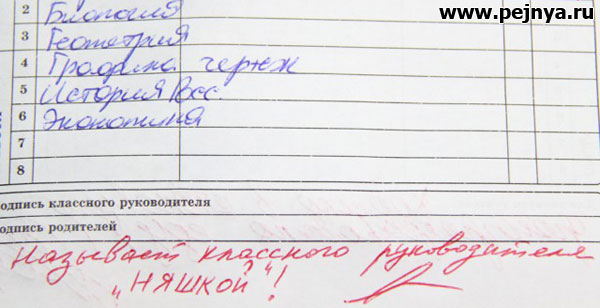 www.pejnya.ru
2 Биология
3 Геометрия
4 Графика чертж
5 История Рос.
6 Экономика
7
8
одпись классного руководителя
одпись родителей
Называет классного руководителя
„НЯШКОЙ“!